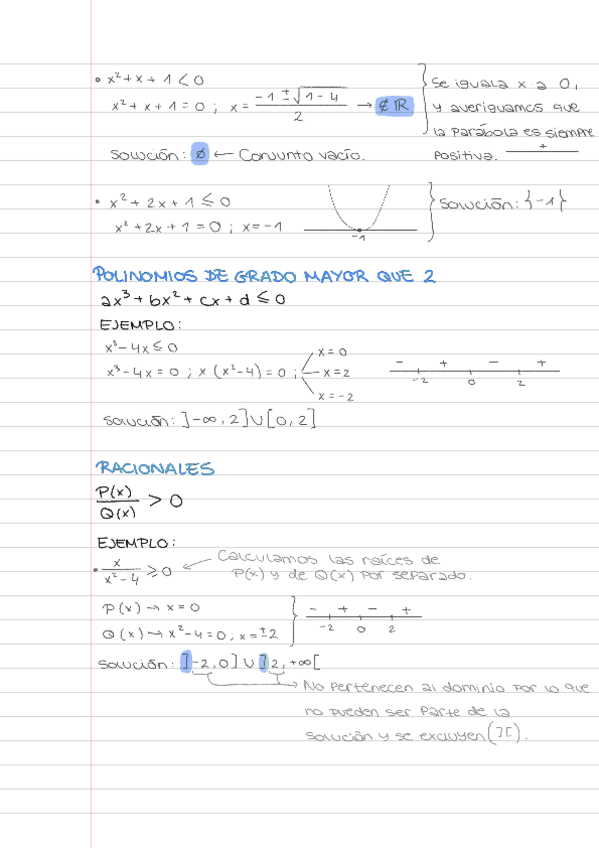 • x² + x + 1 < 0
x² + x + 1 = 0 ; x = (-1 ± √(1 - 4)) / 2 → ∉ ℝ
Se iguala x a 0,
y averiguamos que
la parábola es siempre
positiva. +
Solución: ∅ ← Conjunto vacío.
• x² + 2x + 1 ≤ 0
x² + 2x + 1 = 0 ; x = -1
-1
Solución: {-1}
POLINOMIOS DE GRADO MAYOR QUE 2
ax³ + bx² + cx + d ≤ 0
EJEMPLO:
x³ - 4x ≤ 0
x³ - 4x = 0 ; x (x² - 4) = 0 ;
x = 0
x = 2
x = -2
- + - +
-2 0 2
Solución: ]-∞, 2] ∪ [0, 2]
RACIONALES
P(x) / Q(x) > 0
EJEMPLO:
• x / (x² - 4) ≥ 0 ← Calculamos las raíces de
P(x) y de Q(x) por separado.
P(x) → x = 0
Q(x) → x² - 4 = 0 ; x = ±2
- + - +
-2 0 2
Solución: ]-2, 0] ∪ ]2, +∞[
→ No pertenecen al dominio por lo que
no pueden ser parte de la
solución y se excluyen (][).